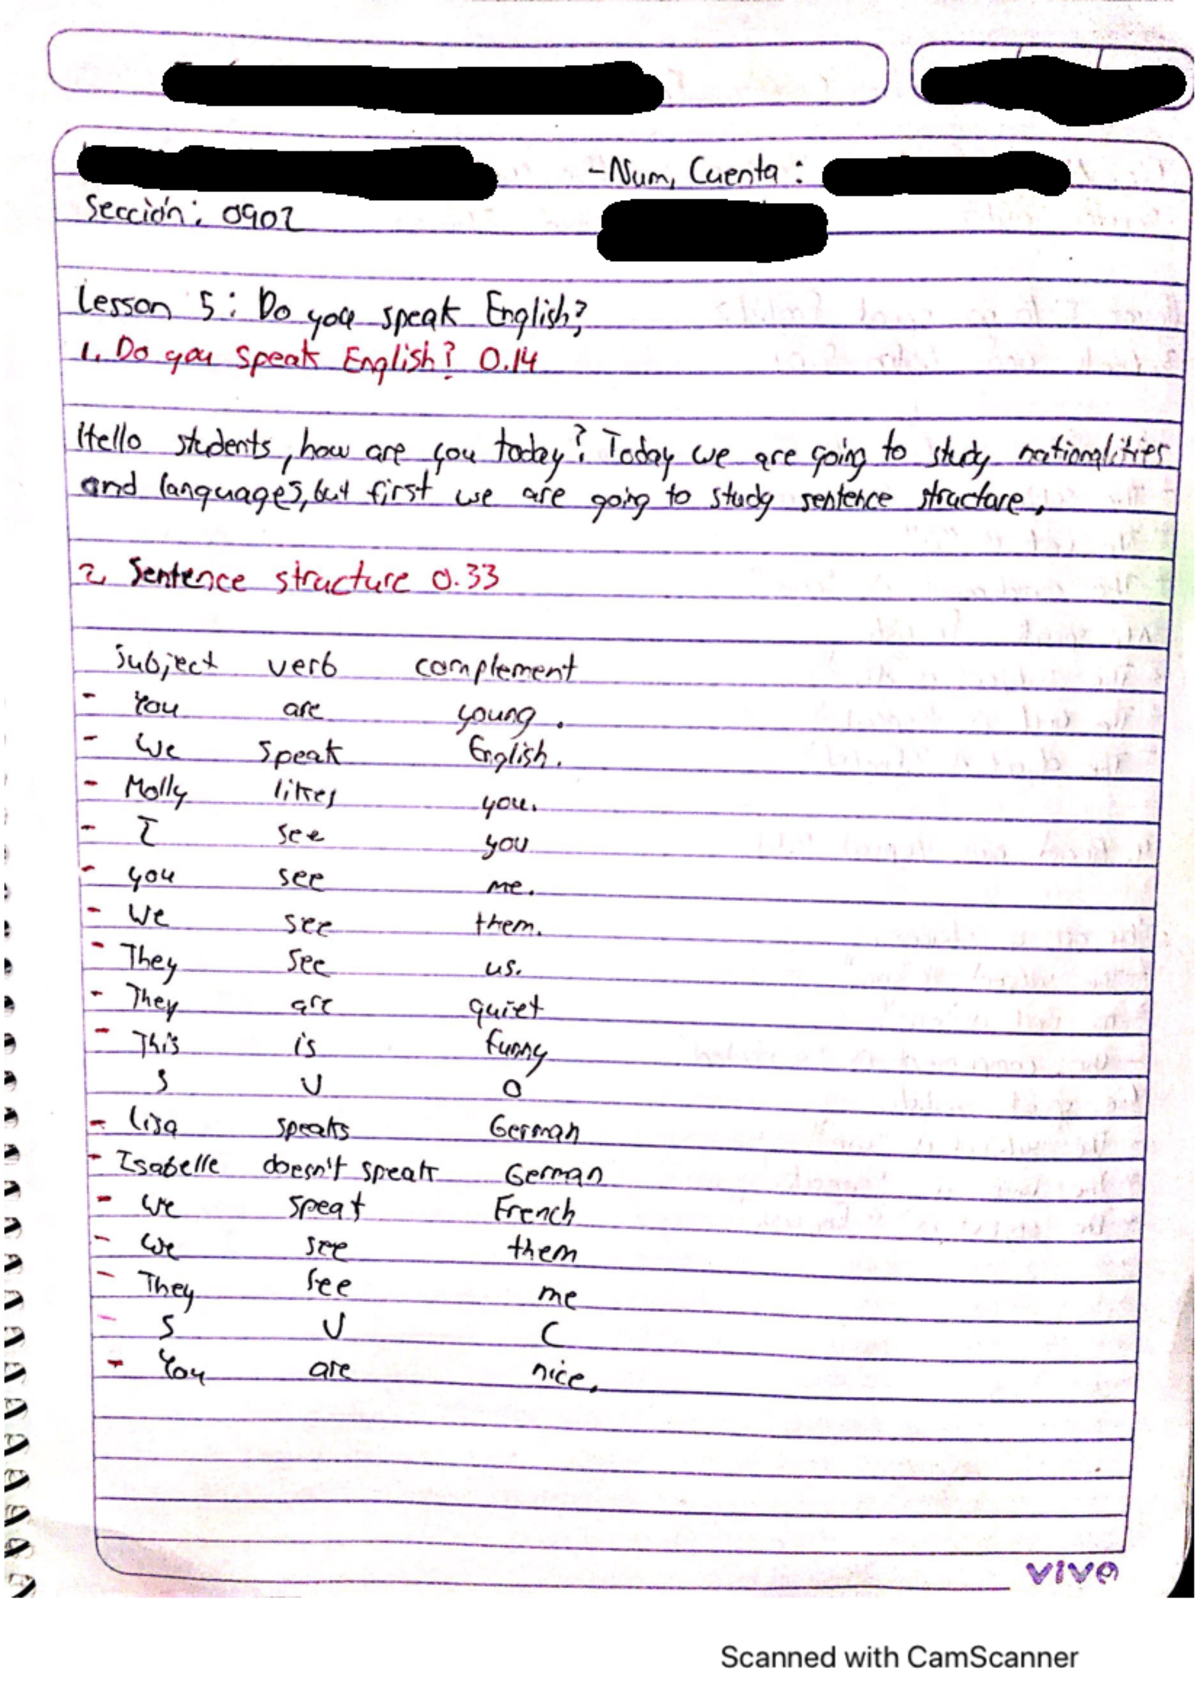 -Num, Cuenta :
Sección: 0902
Lesson 5: Do you speak English?
1. Do you speak English? 0.14
Hello students, how are you today? Today we are going to study nationalities
and languages, but first we are going to study sentence structure.
2. Sentence structure 0.33
Subject verb complement
- You are young.
- We speak English.
- Molly likes you.
- I see you
- you see me.
- We see them.
- They see us.
- They are quiet
- This is funny
S V O
- Lisa speaks German
- Isabelle doesn't speak German
- We speak French
- We see them
- They see me
- S V C
- You are nice.
vivo
Scanned with CamScanner